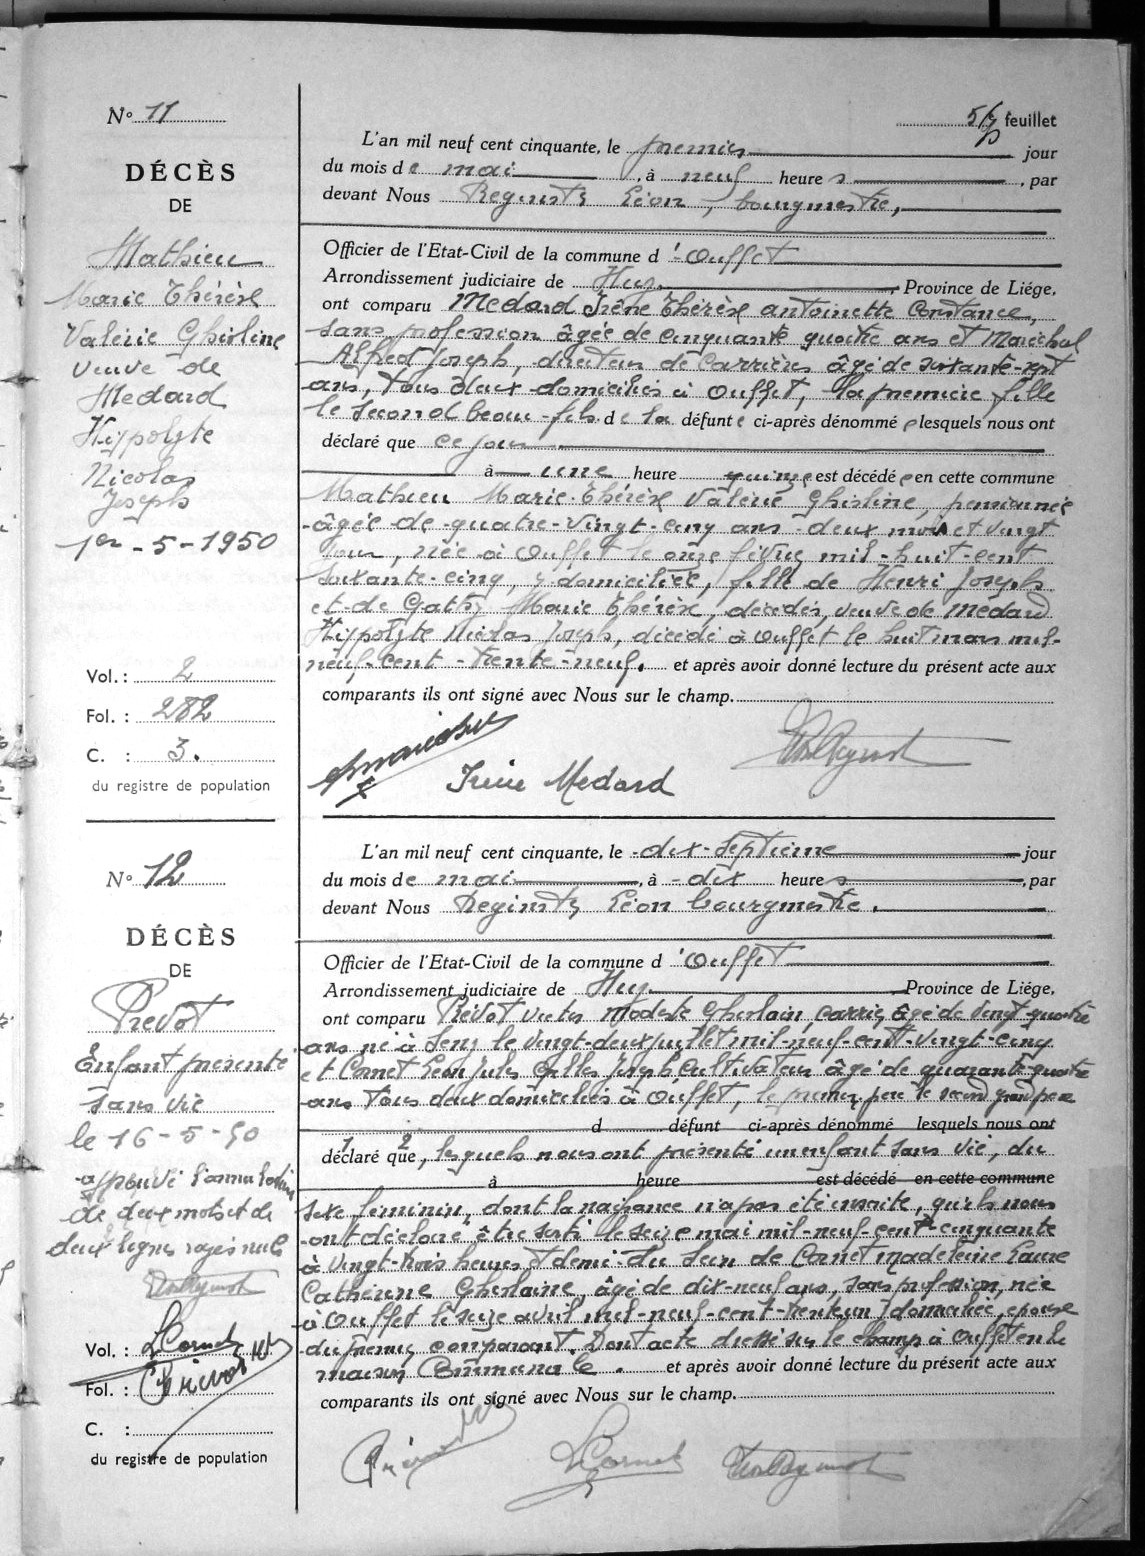 5/7 feuillet
N° 11
DÉCÈS
DE
Mathieu
Marie Thérèse
Valérie Ghisline
veuve de
Medard
Hyppolyte
Nicolas
Joseph
1er - 5 - 1950
Vol. : 2
Fol. : 282
C. : 3.
du registre de population
L'an mil neuf cent cinquante, le premier jour
du mois de mai, à neuf heures, par
devant Nous Léon, bourgmestre,
Officier de l'Etat-Civil de la commune d'Ouffet
Arrondissement judiciaire de Huy, Province de Liége,
ont comparu Medard Irène Thérèse Antoinette Constance,
sans profession âgée de cinquante quatre ans et Maréchal
Alfred Joseph, directeur de carrières âgé de soixante-sept
ans, tous deux domiciliés à Ouffet, la première fille
le second beau-fils de la défunte ci-après dénommée lesquels nous ont
déclaré que ce jour
à une heure quinze est décédée en cette commune
Mathieu Marie-Thérèse Valérie Ghisline, pensionnée
âgée de quatre-vingt-cinq ans deux mois et vingt
jour, née à Ouffet le onze février mil-huit-cent
soixante-cinq, y domiciliée, fille de Henri Joseph
et de Marie Thérèse, décédés, veuve de Medard
Hyppolyte Nicolas Joseph, décédé à Ouffet le huit mars mil-
neuf-cent-trente-neuf. et après avoir donné lecture du présent acte aux
comparants ils ont signé avec Nous sur le champ.
Irène Medard
N° 12
DÉCÈS
DE
Prévot
Enfant présenté
sans vie
le 16-5-50
approuvé l'annulation
de deux mots et de
deux lignes rayés nuls
L Cornet
Prévot
Vol. :
Fol. :
C. :
du registre de population
L'an mil neuf cent cinquante, le dix-septième jour
du mois de mai, à dix heures, par
devant Nous Léon bourgmestre.
Officier de l'Etat-Civil de la commune d'Ouffet
Arrondissement judiciaire de Huy, Province de Liége,
ont comparu Prévot Victor Modeste Ghislain, âgé de vingt-quatre
ans né à le vingt-deux juillet mil-neuf-cent-vingt-cinq
et Cornet Léon Jules Joseph, cultivateur âgé de quarante quatre
ans tous deux domiciliés à Ouffet, le premier père le second grand père
d défunt ci-après dénommé lesquels nous ont
1 2
déclaré que, lesquels nous ont présenté un enfant sans vie, du
à heure est décédé en cette commune
sexe féminin, dont la naissance n'a pas été inscrite, qu'ils nous
ont déclaré être sorti le seize mai mil-neuf-cent-cinquante
à vingt-trois heures et demi du sein de Cornet Madeleine Laure
Catherine Ghislaine, âgée de dix-neuf ans, sans profession, née
à Ouffet le seize avril mil-neuf-cent-trente un y domiciliée, épouse
du premier comparant. Dont acte dressé sur le champ à Ouffet en la
maison Communale. et après avoir donné lecture du présent acte aux
comparants ils ont signé avec Nous sur le champ.
Prévot L Cornet